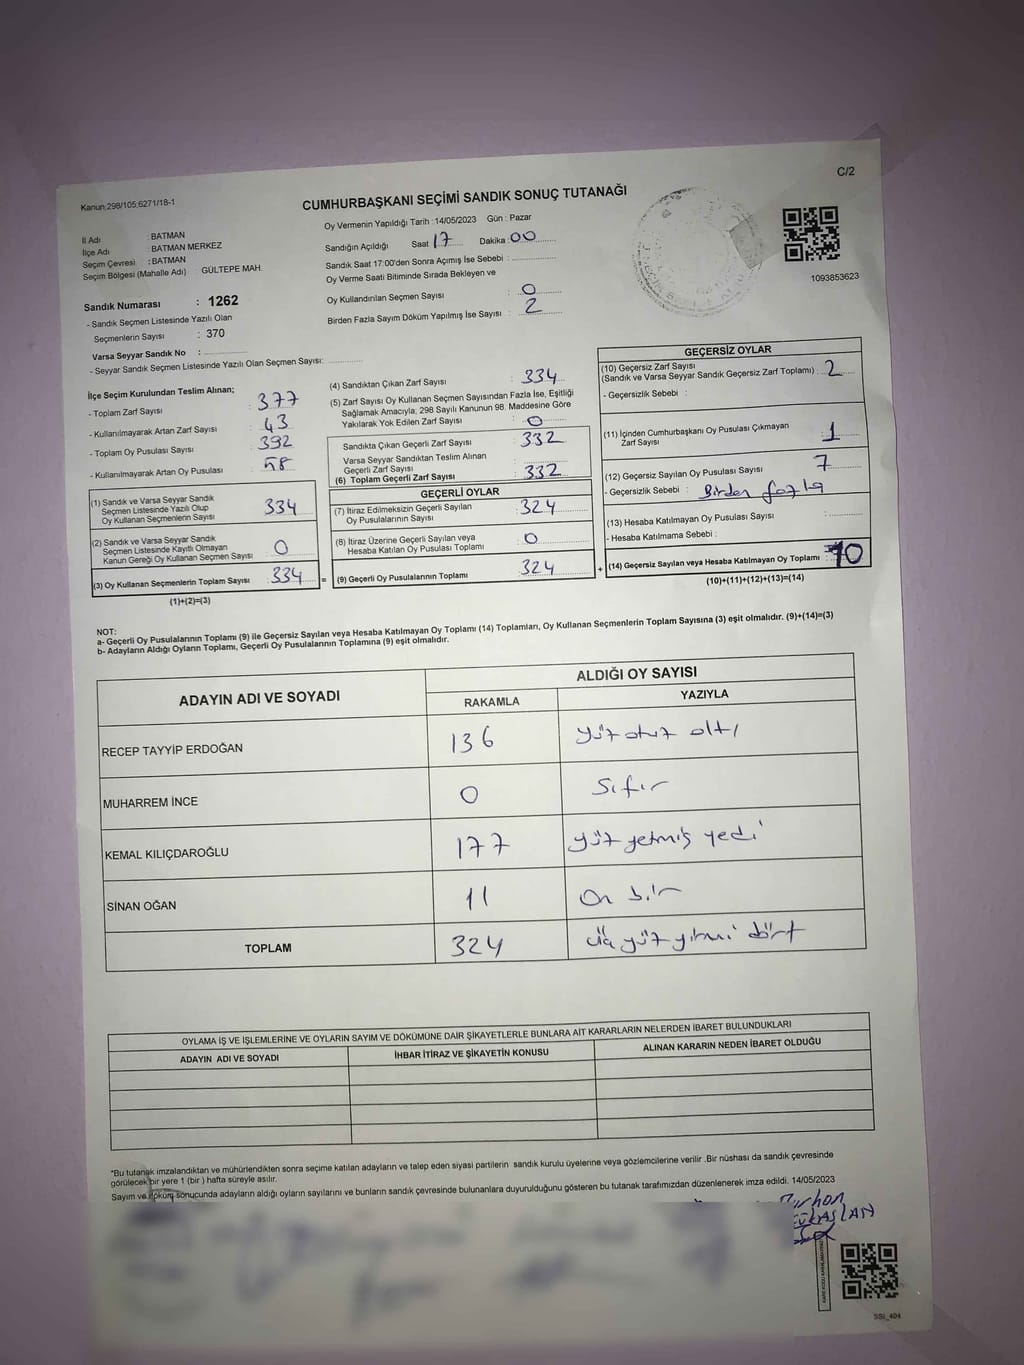 C/2
Kanun:298/105:6271/18-1
CUMHURBAŞKANI SEÇİMİ SANDIK SONUÇ TUTANAĞI
İl Adı : BATMAN
İlçe Adı : BATMAN MERKEZ
Seçim Çevresi : BATMAN
Seçim Bölgesi (Mahalle Adı) GÜLTEPE MAH.
Oy Vermenin Yapıldığı Tarih : 14/05/2023 Gün : Pazar
Sandığın Açıldığı Saat 17 Dakika : 00
Sandık Saat 17:00'den Sonra Açımış İse Sebebi :
Oy Verme Saati Bitiminde Sırada Bekleyen ve
Oy Kullandırılan Seçmen Sayısı : 0
Birden Fazla Sayım Döküm Yapılmış İse Sayısı : 2
1093853623
Sandık Numarası : 1262
- Sandık Seçmen Listesinde Yazılı Olan
Seçmenlerin Sayısı : 370
Varsa Seyyar Sandık No :
- Seyyar Sandık Seçmen Listesinde Yazılı Olan Seçmen Sayısı:
İlçe Seçim Kurulundan Teslim Alınan;
- Toplam Zarf Sayısı : 377
- Kullanılmayarak Artan Zarf Sayısı : 43
- Toplam Oy Pusulası Sayısı : 392
- Kullanılmayarak Artan Oy Pusulası : 58
(1) Sandık ve Varsa Seyyar Sandık
Seçmen Listesinde Yazılı Olup
Oy Kullanan Seçmenlerin Sayısı : 334
(2) Sandık ve Varsa Seyyar Sandık
Seçmen Listesinde Kayıtlı Olmayan
Kanun Gereği Oy Kullanan Seçmen Sayısı : 0
(3) Oy Kullanan Seçmenlerin Toplam Sayısı : 334
(1)+(2)=(3)
(4) Sandıktan Çıkan Zarf Sayısı : 334
(5) Zarf Sayısı Oy Kullanan Seçmen Sayısından Fazla İse, Eşitliği
Sağlamak Amacıyla; 298 Sayılı Kanunun 98. Maddesine Göre
Yakılarak Yok Edilen Zarf Sayısı : 0
Sandıkta Çıkan Geçerli Zarf Sayısı : 332
Varsa Seyyar Sandıktan Teslim Alınan
Geçerli Zarf Sayısı :
(6) Toplam Geçerli Zarf Sayısı : 332
GEÇERLİ OYLAR
(7) İtiraz Edilmeksizin Geçerli Sayılan
Oy Pusulalarının Sayısı : 324
(8) İtiraz Üzerine Geçerli Sayılan veya
Hesaba Katılan Oy Pusulası Toplamı : 0
= (9) Geçerli Oy Pusulalarının Toplamı : 324 +
GEÇERSİZ OYLAR
(10) Geçersiz Zarf Sayısı
(Sandık ve Varsa Seyyar Sandık Geçersiz Zarf Toplamı) : 2
- Geçersizlik Sebebi :
(11) İçinden Cumhurbaşkanı Oy Pusulası Çıkmayan
Zarf Sayısı : 1
(12) Geçersiz Sayılan Oy Pusulası Sayısı : 7
- Geçersizlik Sebebi : Birden fazla
(13) Hesaba Katılmayan Oy Pusulası Sayısı :
- Hesaba Katılmama Sebebi :
(14) Geçersiz Sayılan veya Hesaba Katılmayan Oy Toplamı : 10
(10)+(11)+(12)+(13)=(14)
NOT:
a- Geçerli Oy Pusulalarının Toplamı (9) ile Geçersiz Sayılan veya Hesaba Katılmayan Oy Toplamı (14) Toplamları, Oy Kullanan Seçmenlerin Toplam Sayısına (3) eşit olmalıdır. (9)+(14)=(3)
b- Adayların Aldığı Oyların Toplamı, Geçerli Oy Pusulalarının Toplamına (9) eşit olmalıdır.
ADAYIN ADI VE SOYADI ALDIĞI OY SAYISI
RAKAMLA YAZIYLA
RECEP TAYYİP ERDOĞAN 136 yüz otuz altı
MUHARREM İNCE 0 Sıfır
KEMAL KILIÇDAROĞLU 177 yüz yetmiş yedi
SİNAN OĞAN 11 On bir
TOPLAM 324 üç yüz yirmi dört
OYLAMA İŞ VE İŞLEMLERİNE VE OYLARIN SAYIM VE DÖKÜMÜNE DAİR ŞİKAYETLERLE BUNLARA AİT KARARLARIN NELERDEN İBARET BULUNDUKLARI
ADAYIN ADI VE SOYADI İHBAR İTİRAZ VE ŞİKAYETİN KONUSU ALINAN KARARIN NEDEN İBARET OLDUĞU
*Bu tutanak imzalandıktan ve mühürlendikten sonra seçime katılan adayların ve talep eden siyasi partilerin sandık kurulu üyelerine veya gözlemcilerine verilir .Bir nüshası da sandık çevresinde
görülecek bir yere 1 (bir ) hafta süreyle asılır.
Sayım ve döküm sonucunda adayların aldığı oyların sayılarını ve bunların sandık çevresinde bulunanlara duyurulduğunu gösteren bu tutanak tarafımızdan düzenlenerek imza edildi. 14/05/2023
SSI_404